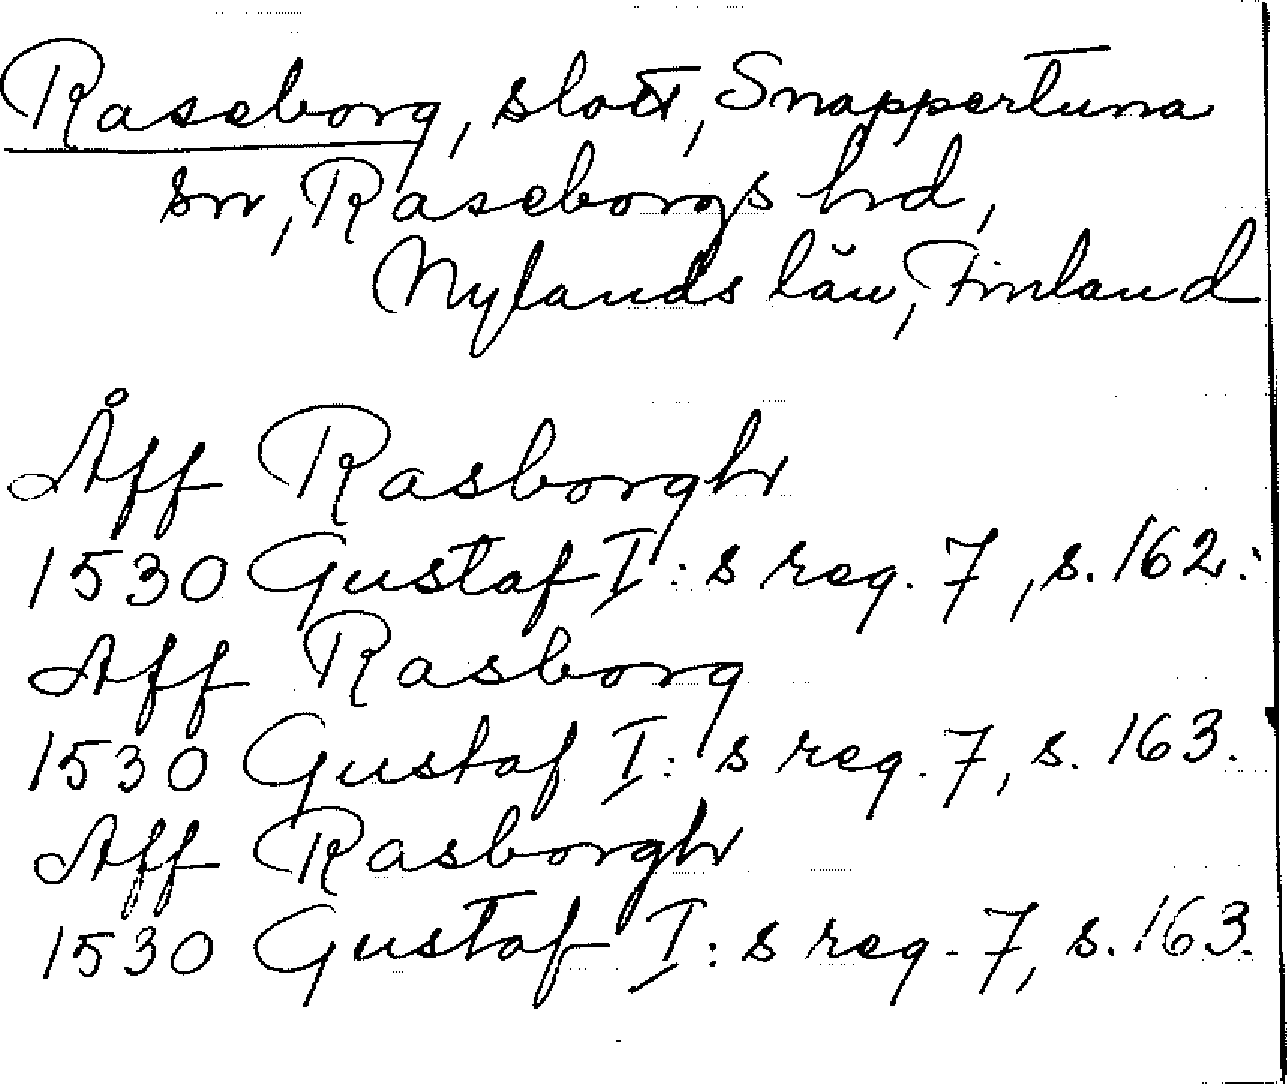 Raseborg, slott, Snappertuna
sn, Raseborgs hd,
Nylands län, Finland
Åff Rasborgh
1530 Gustaf I:s reg. 7, s. 162.
Aff Rasborg
1530 Gustaf I:s reg. 7, s. 163.
Aff Rasborgh
1530 Gustaf I:s reg. 7, s. 163.